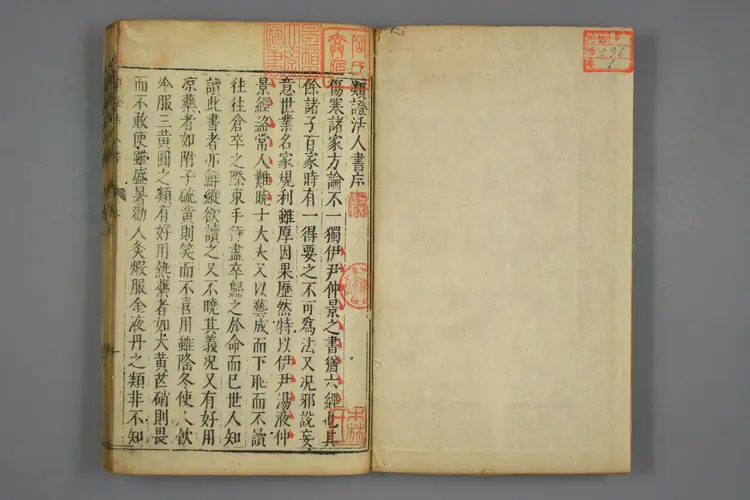 類證活人書序
傷寒諸家方論不一獨伊尹仲景之書猶六經也其
餘諸子百家時有一得要之不可爲法又况邪說妄
意世業名家規利雖厚因果歷然特以伊尹湯液仲
景經論常人難曉士大夫又以藝成而下恥而不讀
往往倉卒之際束手待盡卒歸之於命而已世人知
讀此書者亦鮮縱欲讀之又不曉其義况又有好用
凉藥者如附子硫黃則笑而不喜用雖隆冬使人飲
冷服三黃圓之類有好用熱藥者如大黃芒硝則畏
而不敢使雖盛暑勸人灸煅服金液丹之類非不知